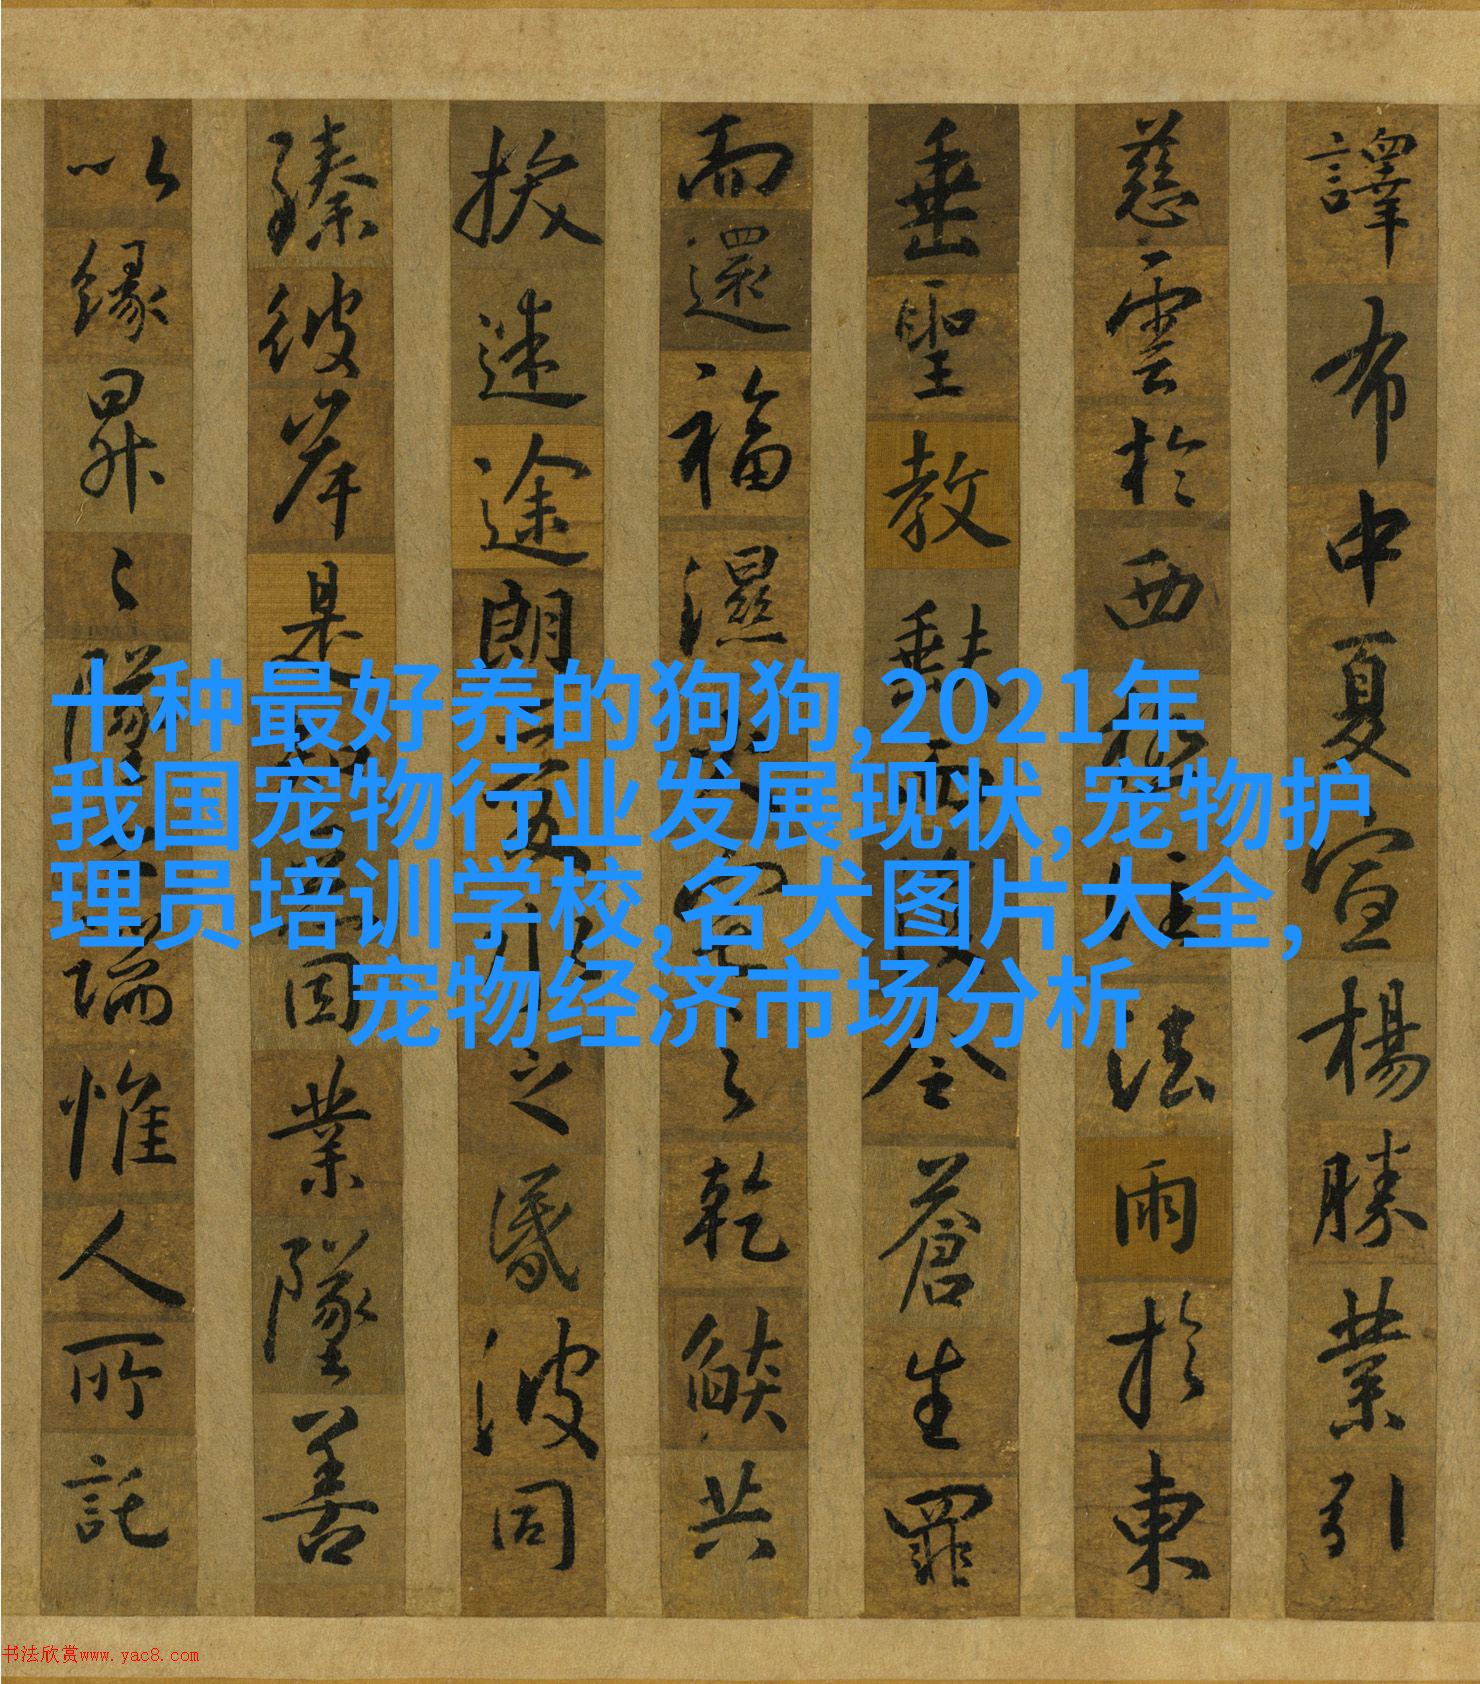 譯布中夏宣楊勝業引
慈雲於西極注法雨於東
垂聖教缺而復全蒼生罪
而還福濕火宅之乾燄共
拔迷途朗愛水之昏波同
臻彼岸是知惡因業墜善
以緣昇〻墜之端惟人所託
十种最好养的狗狗,2021年
我国宠物行业发展现状,宠物护
理员培训学校,名犬图片大全,
宠物经济市场分析
书法欣赏www.yac8.com